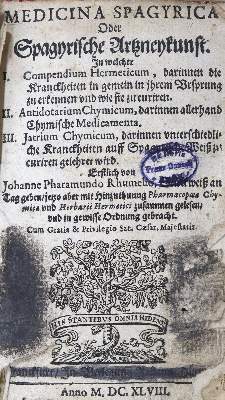 MEDICINA SPAGYRICA
Oder
Spagyrische Artzneykunst.
In welcher
I. Compendium Hermeticum, darinnen die
Kranckheiten in gemein in ihrem Vrsprung
zu erkennen vnd wie sie zu curiren.
II. Antidotarium Chymicum, darinnen allerhand
Chymische Medicamenta.
III. Jatrium Chymicum, darinnen vnterschiedliche
Kranckheiten auff Weiß zu
curiren gelehret wird.
Erstlich von
Johanne Pharamundo Rhumelio, weiß an
Tag geben / jetzo aber mit Hinzuthuung Pharmacopææ Chymicæ
vnd Herbarii Hermetici zusammen gelesen,
vnd in gewisse Ordnung gebracht.
Cum Gratia & Privilegio Sac. Cæsar. Majestatis.
STANTIBUS OMNIA
In Verlegung
Anno M. DC. XLVIII.